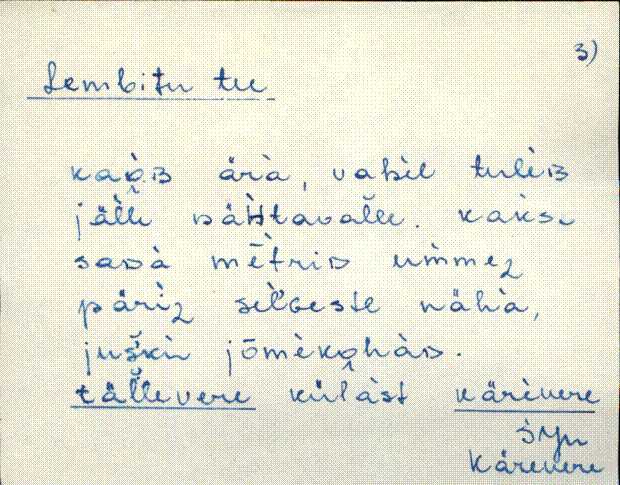 3)
Lembitu tee
kaòʙ ärà, vahèl tulèʙ
jäĺle nähtavaĺle. kakse
saᴅà mètriᴅ ummeᴢ
pärìᴢ seĺɢeste nähà,
juškù jõmèkohàᴅ.
täĺlevere külàst kärèvere
SJn
Kärevere